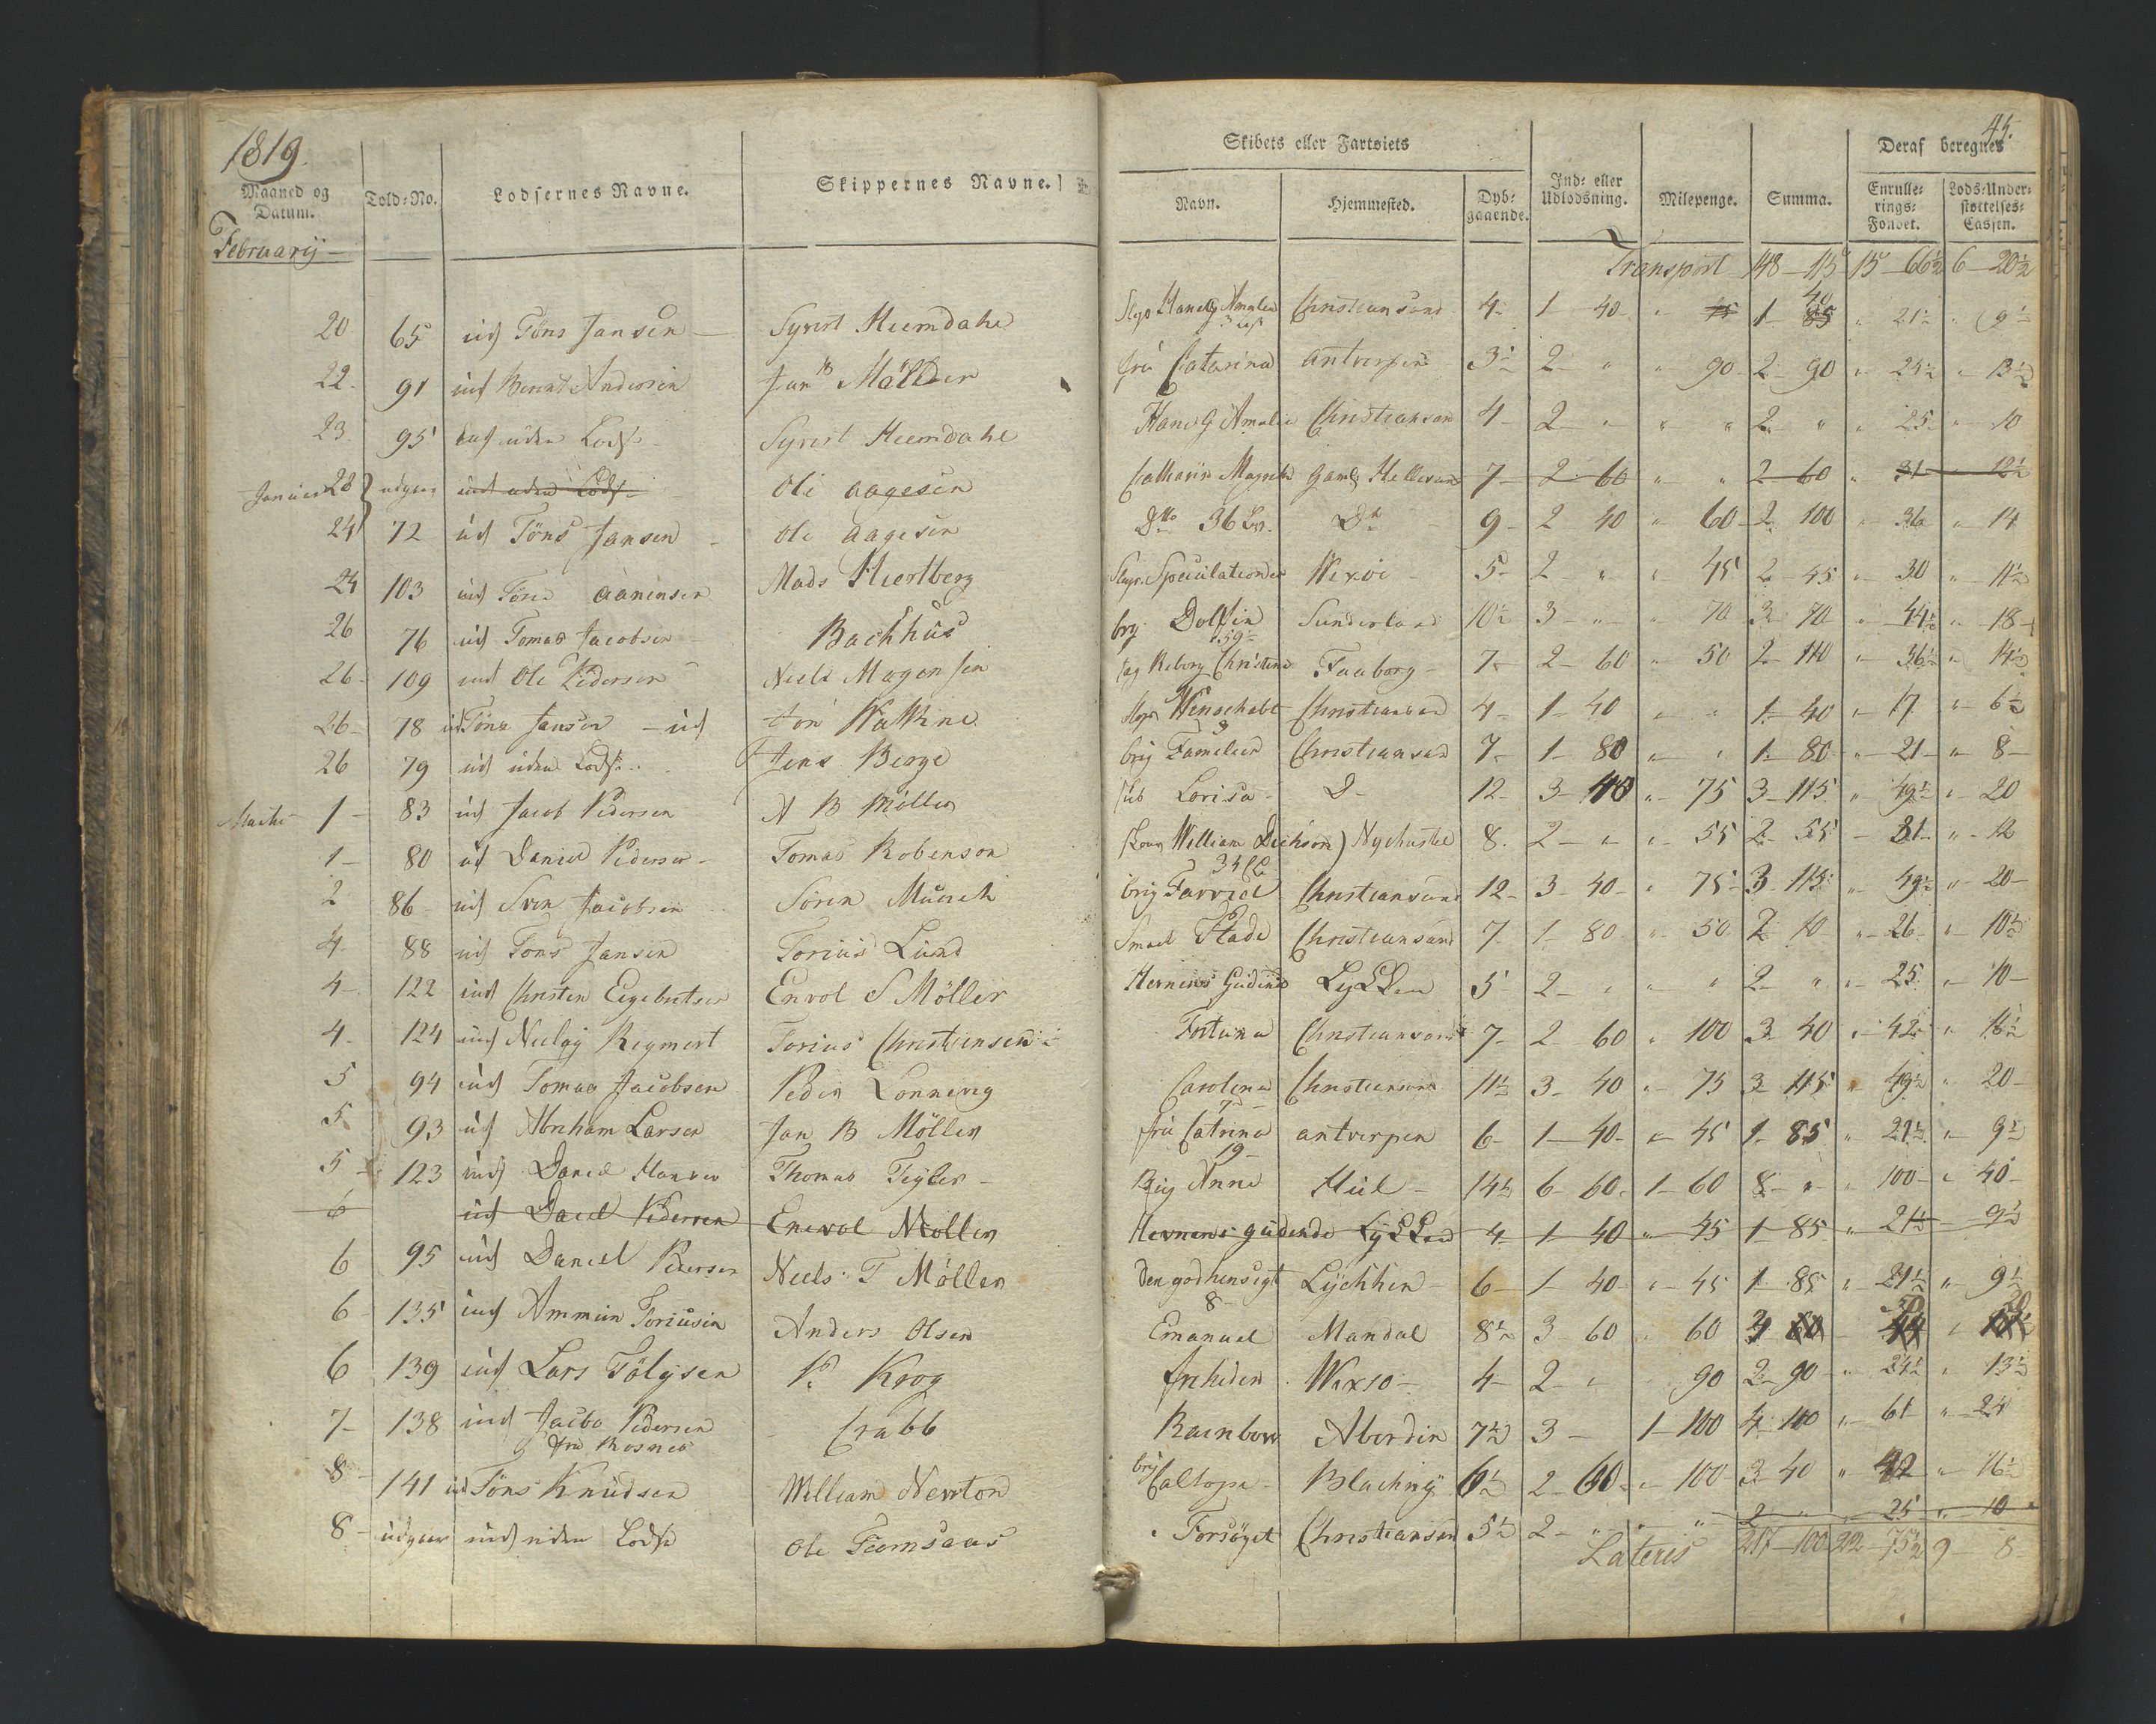 1819.
45.
Maaned og Datum. Told-No. Lodsernes Navne. Skippernes Navne. Skibets eller Fartøiets Navn. Hjemmested. Dyb-gaaende. Ind- eller Udlodsning. Milepenge. Summa. Deraf beregnes Enrullerings-Fondet. Lods-Understøttelses-Cassen.
Februarij
Transport 148 - 115 15 - 66½ 6 - 20½
20 65 ud Töns Jansen Syvert Heemdahl Hans G Amalia Christiansand 4 - 1 - 40 - " 45 1 - 85 40 " 21½ " 9½
22. 91 ind Bernt Andersen Jan B Möller fru Catarina antverpen 3½ 2 - " " 90 - 2 - 90 " 24½ " 13½
23. 95 ind uden Lods Syvert Heemdahl Hans G Amalia Christiansan 4 - 2 - " " " 2 - " " 25 - " 10
28 udgaar ind uden Lods Ole aagesen Gaml Hellesund 7 - 2 - 60 " " 2 - 60 " 31 - 12½
24 72 ud Töns Jansen Ole aagesen Dto 36 Do 9 - 2 40 " 60 - 2 100 " 36 " 14
24 103 ind Töns aanensen Mads Hiertberg Speculationen Wexöe 5 - 2 - " " 45 2 - 45 " 30 " 11½
26 76 ud Tomas Jacobsen Bachhus brg Dolfin Sunderland 10½ 3 - " " 70 3 - 70 " 44½ " 18
59
26 - 109 ind Ole Pedersen Niels Mogensen Christine Faaborg 7 - 2 - 60 " 50 2 - 110 " 36½ " 14½
26 - 78 ud Töns Jansen - ud Wenschabt Christiansand 4 - 1 - 40 " " 1 - 40 " 17 " 6½
26 79 ud uden Lods Jens Berge brig Familien Christiansand 7 - 1 - 80 " " 1 - 80 " 21 " 8
Martii 1 - 83 ud Jacob Pedersen A B Möller Lorisa D 12 - 3 - 40 " 75 3 - 115 " 49½ " 20
1 - 80 ud Daniel Pedersen Tomas Robenson William Dickson Nychastel 8. 2 - " " 55 2 - 55 - 31 " 12
34
2 86 ud Sven Jacobsen Sören Munch brig Farvel Christiansand 12 - 3 - 40 - " 75 - 3 - 115 " 49½ " 20
4 - 88 ud Töns Jansen Torius Lund Christiansand 7 1 - 80 " 50 2 - 10 " 26 " 10½
4 - 122 ind Christen Eegebertsen Envol S Möller Hernens Gudende Lykken 5 2 - " " " 2 - " " 25 " 10
4 - 124 ind Nielaj Regmert Torius Christensen Fortuna Christiansand 7 - 2 - 60 " 100 3 - 40 " 42 " 16½
5 94 ud Tomas Jacobsen Peder Lonneng Carolina Christiansand 11½ 3 - 40 " 75 3 - 115 " 49½ " 20
5 93 ud Abraham Larsen Jan B Möller fru Catrina antverpen 6 - 1 - 40 - " 45 1 - 85 " 21½ " 9½
19
5 123 ind Daniel Hansen Thomas Teyler Brig Anne Hül 14½ 6 - 60 - 1 - 60 8 - " " 100 " 40
6 ud Daniel Pedersen Enevol Möller Hernens gudende Lykken 4 - 1 - 40 " 45 1 - 85 " 21½ - 9½
6 95 ud Daniel Pedersen Niels T Möller Den god hensigt Lychken 6 - 1 - 40 " 45 1 - 85 " 21½ " 9½
8
6 - 135 ind Ammun Toriusen Anders Olsen Emanuel Mandal 8½ 3 - 60 " 60
6 139 ind Lars Tölgsen P. Krog friheden Wexsö 4 - 2 - " 90 2 - 90 " 24½ " 13½
7 - 138 ind Jacob Pedersen Crabb Rainbow Aberdin 7½ 3 - 1 - 100 4 - 100 " 61 " 24
8 - 141 ud Töns Knudsen William Newton brig Caltopa Blachnij 6½ 2 - 60 " 100 3 - 40 " 42 " 16½
8 - udgaar ind uden Lods Ole Forsöget Christiansan 5½ 2 - " " " 2 - " " 25 " 10
Lateris 217 - 100 22 - 75½ 9 - 8